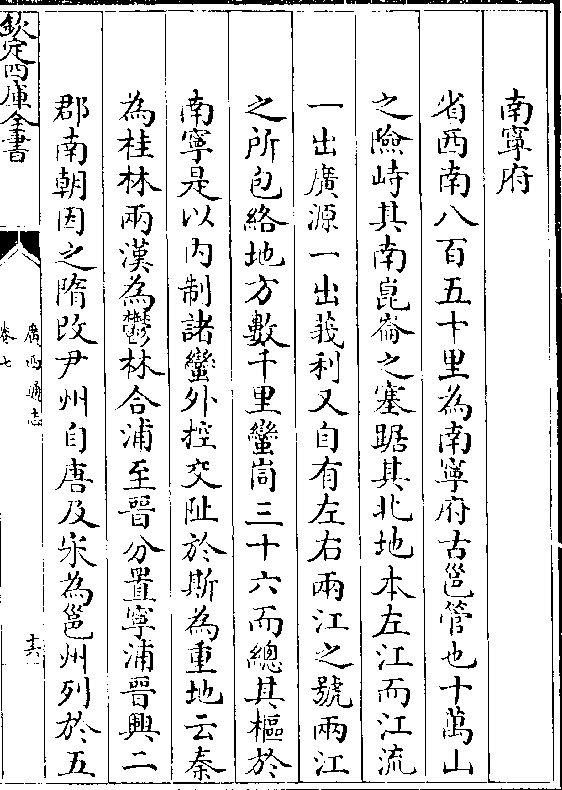 南寧府
省西南八百五十里為南寧府古邕管也十萬山
之險峙其南崑崙之塞踞其北地本左江而江流
一出廣源一出莪利又自有左右兩江之號兩江
之所包絡地方數千里蠻峝三十六而總其樞於
南寧是以内制諸蠻外控交阯於斯為重地云秦
為桂林兩漢為鬱林合浦至晉分置寧浦晉興二
郡南朝因之隋改尹州自唐及宋為邕州列於五
欽定四庫全書
廣西通志
卷七
十六